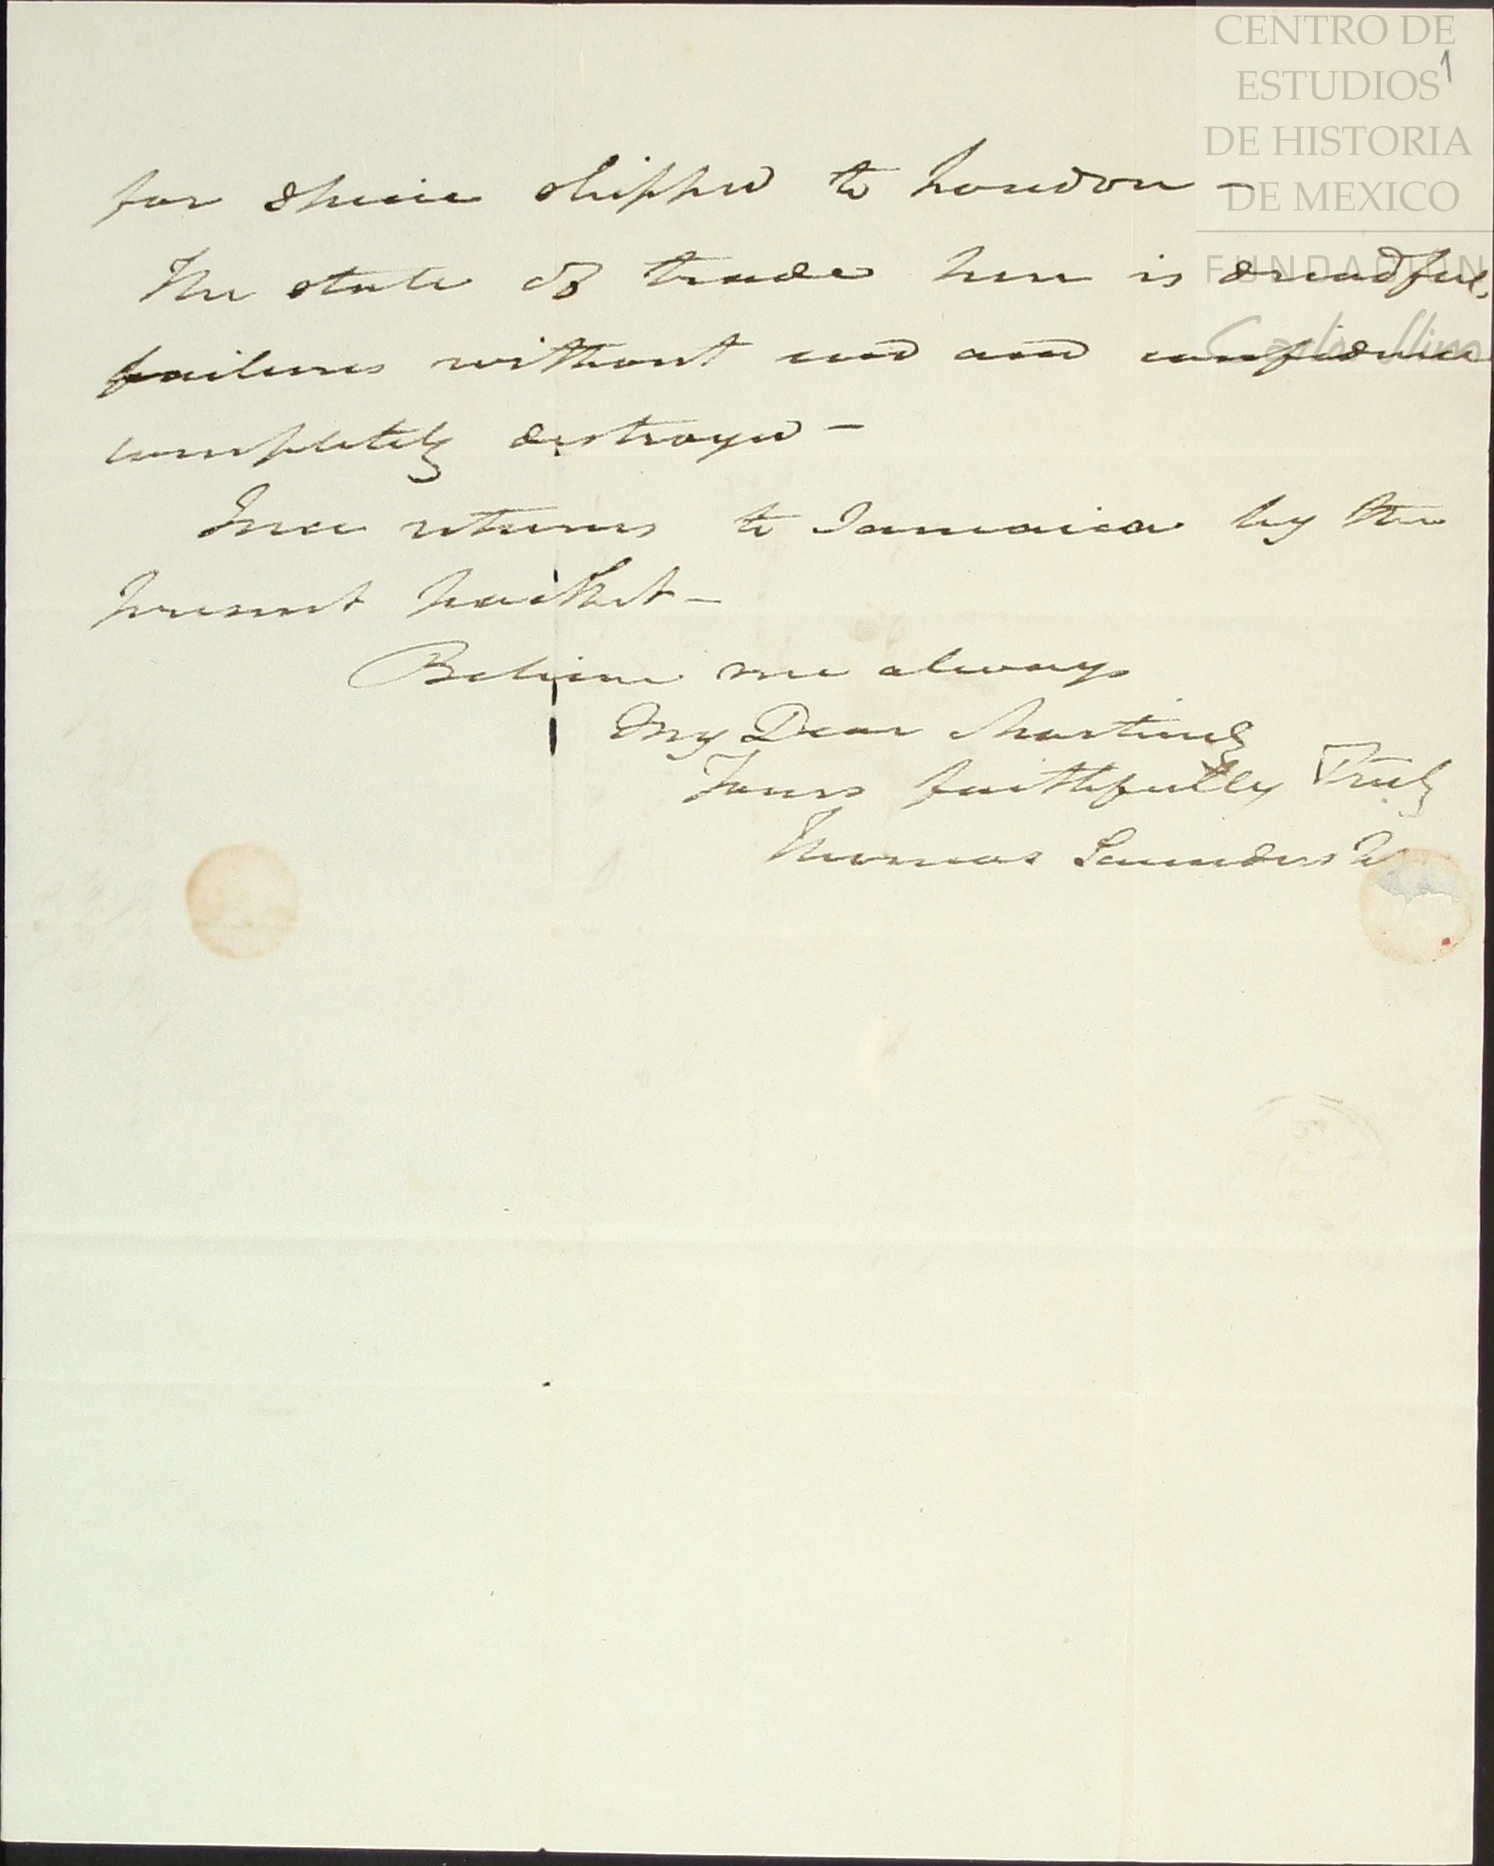 CENTRO DE
ESTUDIOS
DE HISTORIA
DE MEXICO
FUNDACIÓN
Carlos Slim
1
for Specie shipped to London –
The state of trade here is dreadful,
failures without end and confidence
completely destroyed –
returns to Jamaica by the
present packet –
Believe me always
My Dear Martinez
Yours faithfully & Truly
Thomas Saunders